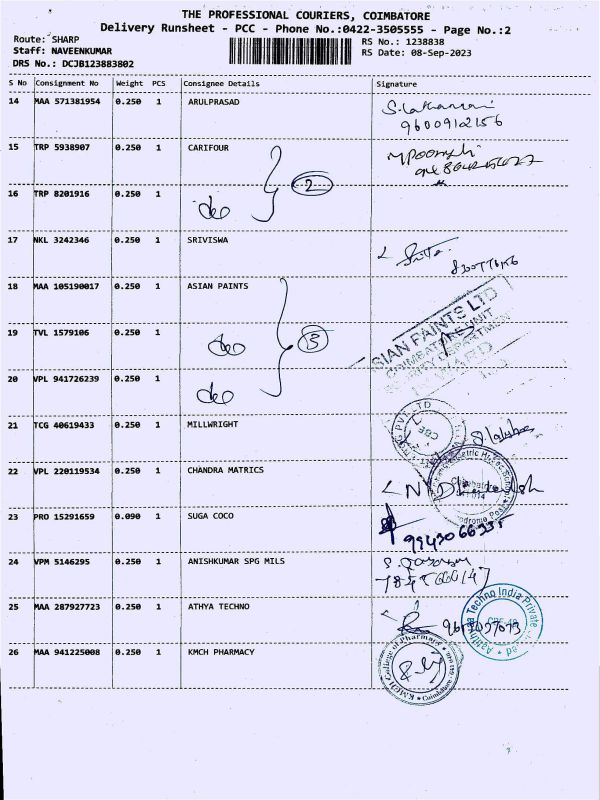 THE PROFESSIONAL COURIERS, COIMBATORE
Delivery Runsheet - PCC - Phone No.:0422-3505555 - Page No.:2
Route: SHARP RS No.: 1238838
Staff: NAVEENKUMAR RS Date: 08-Sep-2023
DRS No.: DCJB123883802
S No Consignment No Weight PCS Consignee Details Signature
14 MAA 571381954 0.250 1 ARULPRASAD
9600912156
15 TRP 5938907 0.250 1 CARIFOUR
2
16 TRP 8201916 0.250 1 do
17 NKL 3242346 0.250 1 SRIVISWA
18 MAA 105190017 0.250 1 ASIAN PAINTS
SIAN PAINTS LTD
19 TVL 1579106 0.250 1 do 3
20 VPL 941726239 0.250 1 do
21 TCG 40619433 0.250 1 MILLWRIGHT
PVT LTD
22 VPL 220119534 0.250 1 CHANDRA MATRICS
23 PRO 15291659 0.090 1 SUGA COCO
9943066335
24 VPM 5146295 0.250 1 ANISHKUMAR SPG MILS
25 MAA 287927723 0.250 1 ATHYA TECHNO
Techno India Private
26 MAA 941225008 0.250 1 KMCH PHARMACY
KMCH College of Pharmacy
Coimbatore